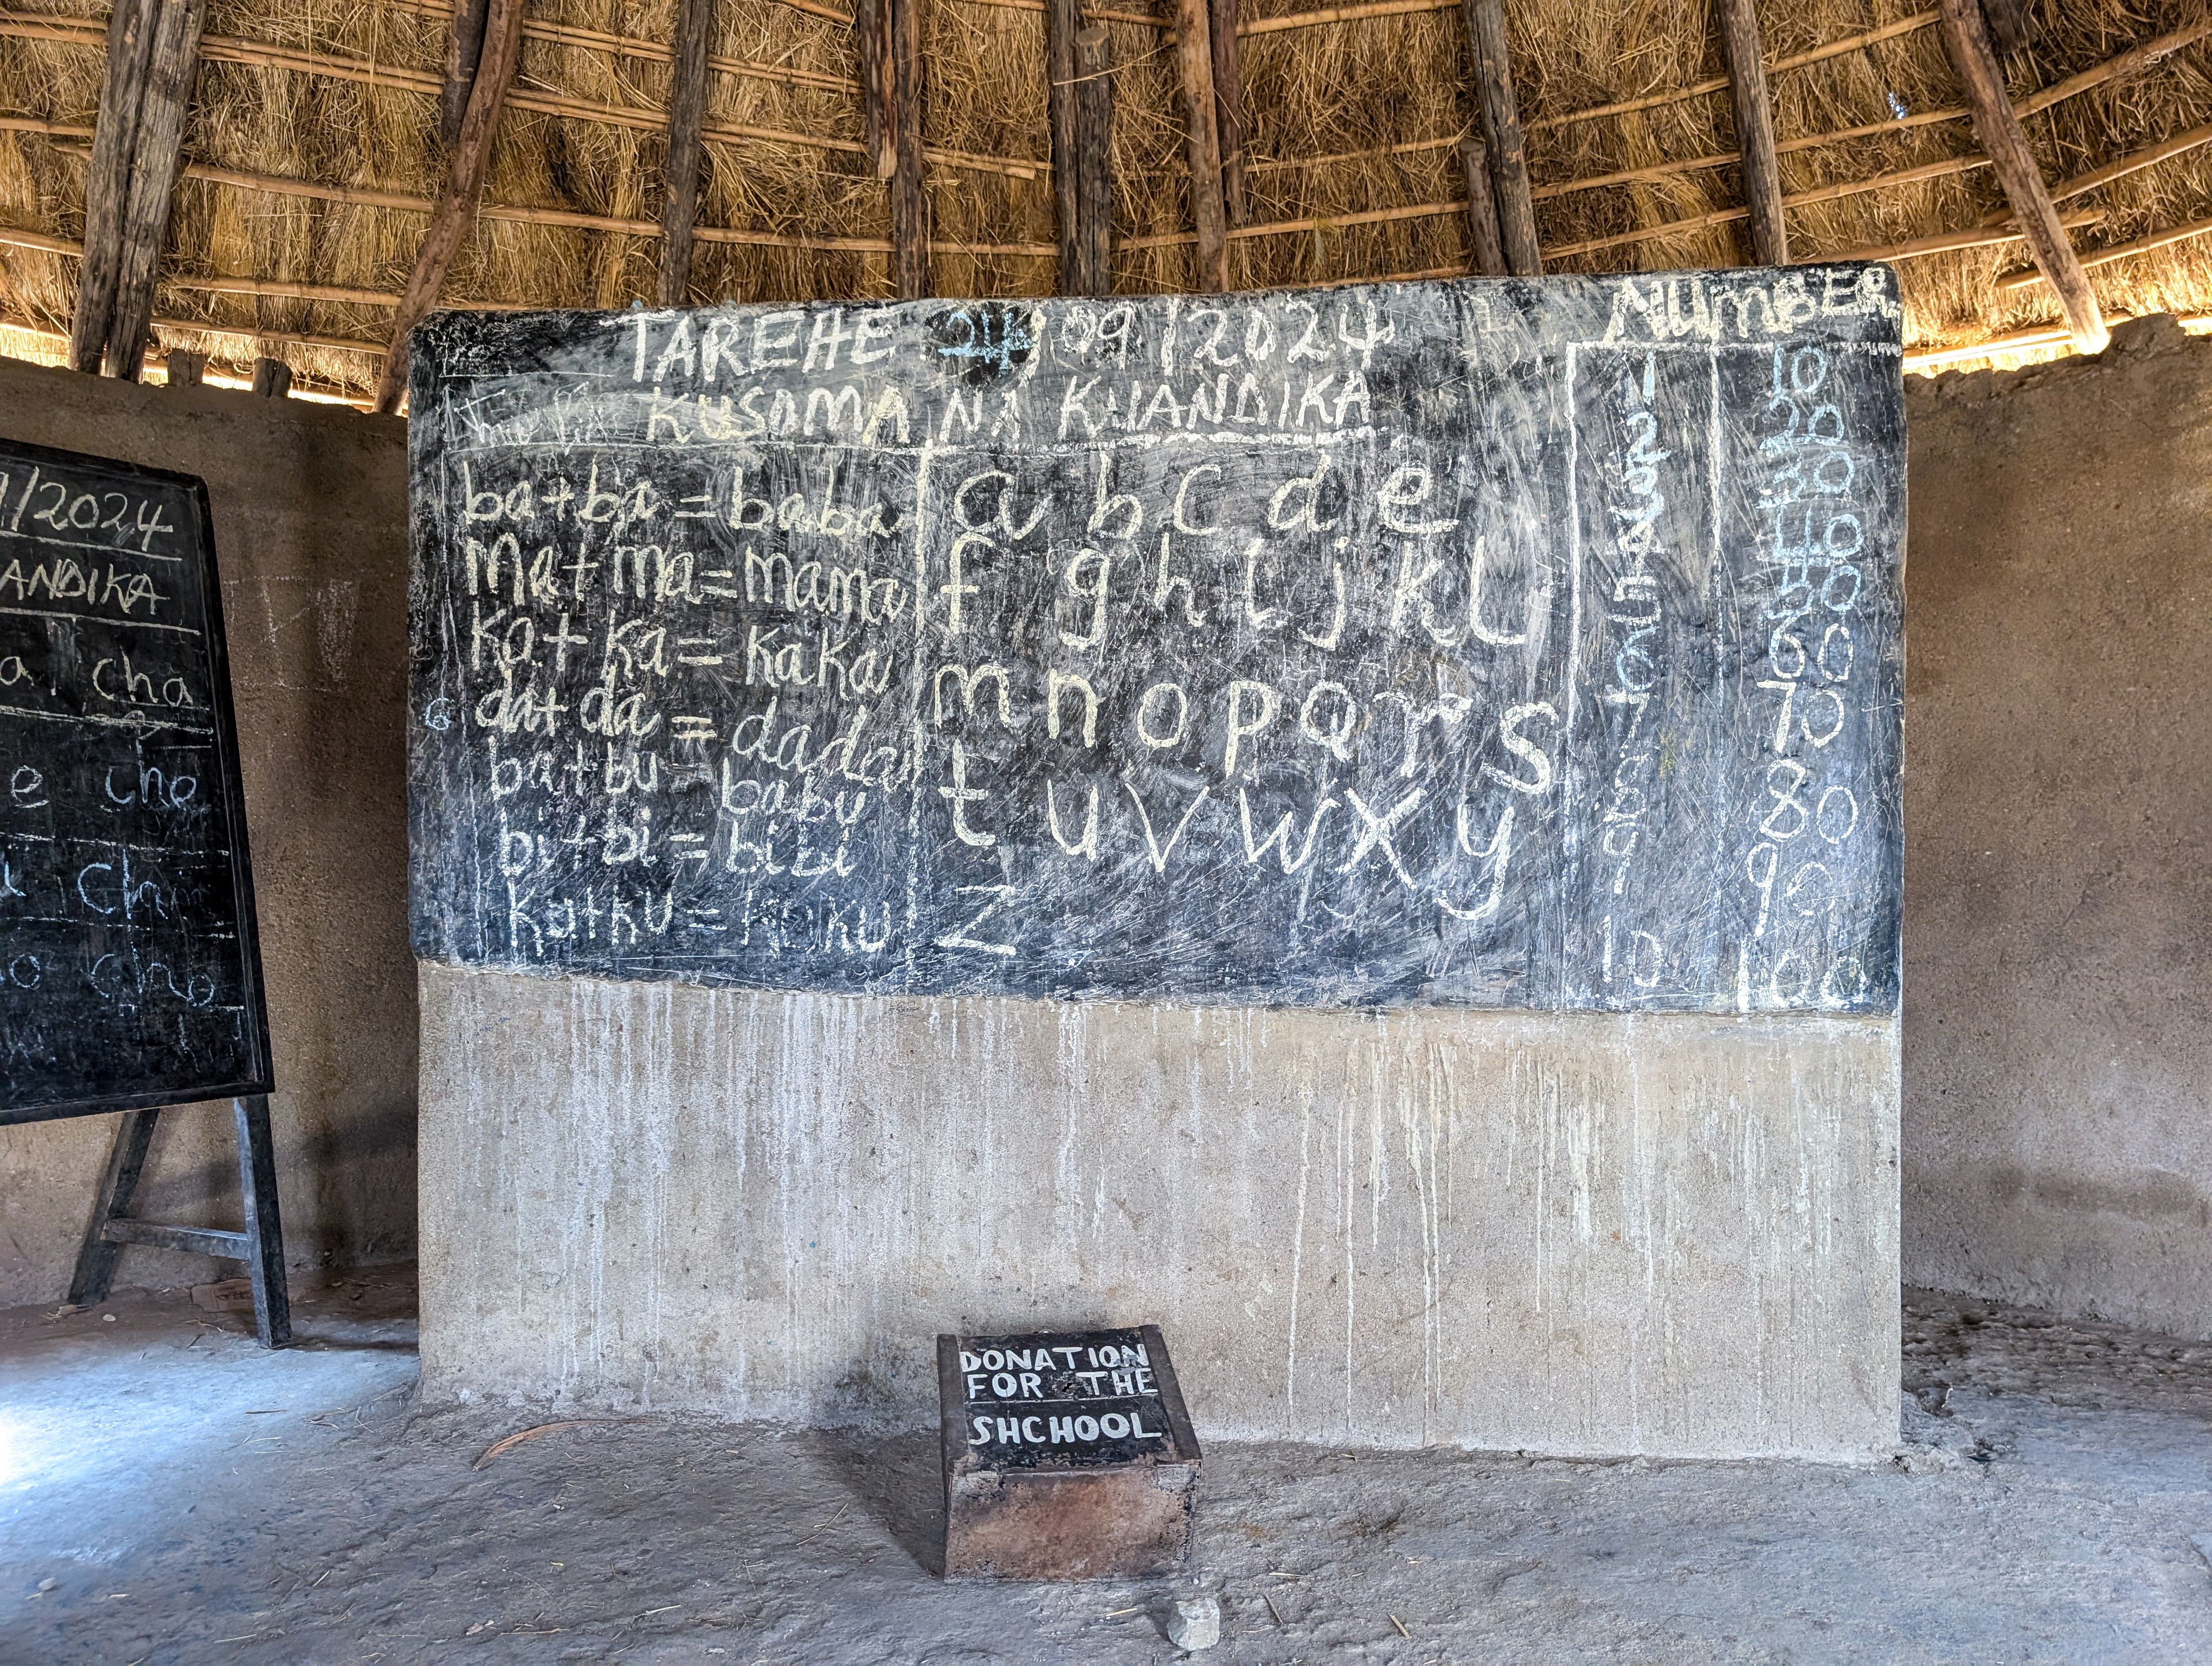 TAREHE 24/09/2024
KUSOMA NA KUANDIKA
ba+ba=baba
ma+ma=mama
ka+ka=kaka
da+da=dada
ba+bu=babu
bi+bi=bibi
Ku+ku=KUKU
a b c d e
f g h i j k l
m n o p q r s
t u v w x y
z
NUMBER
1 10
2 20
3 30
4 40
5 50
6 60
7 70
8 80
9 90
10 100
6
/2024
ANDIKA
a, cha
e che
chi
o cho
DONATION
FOR THE
SHCHOOL